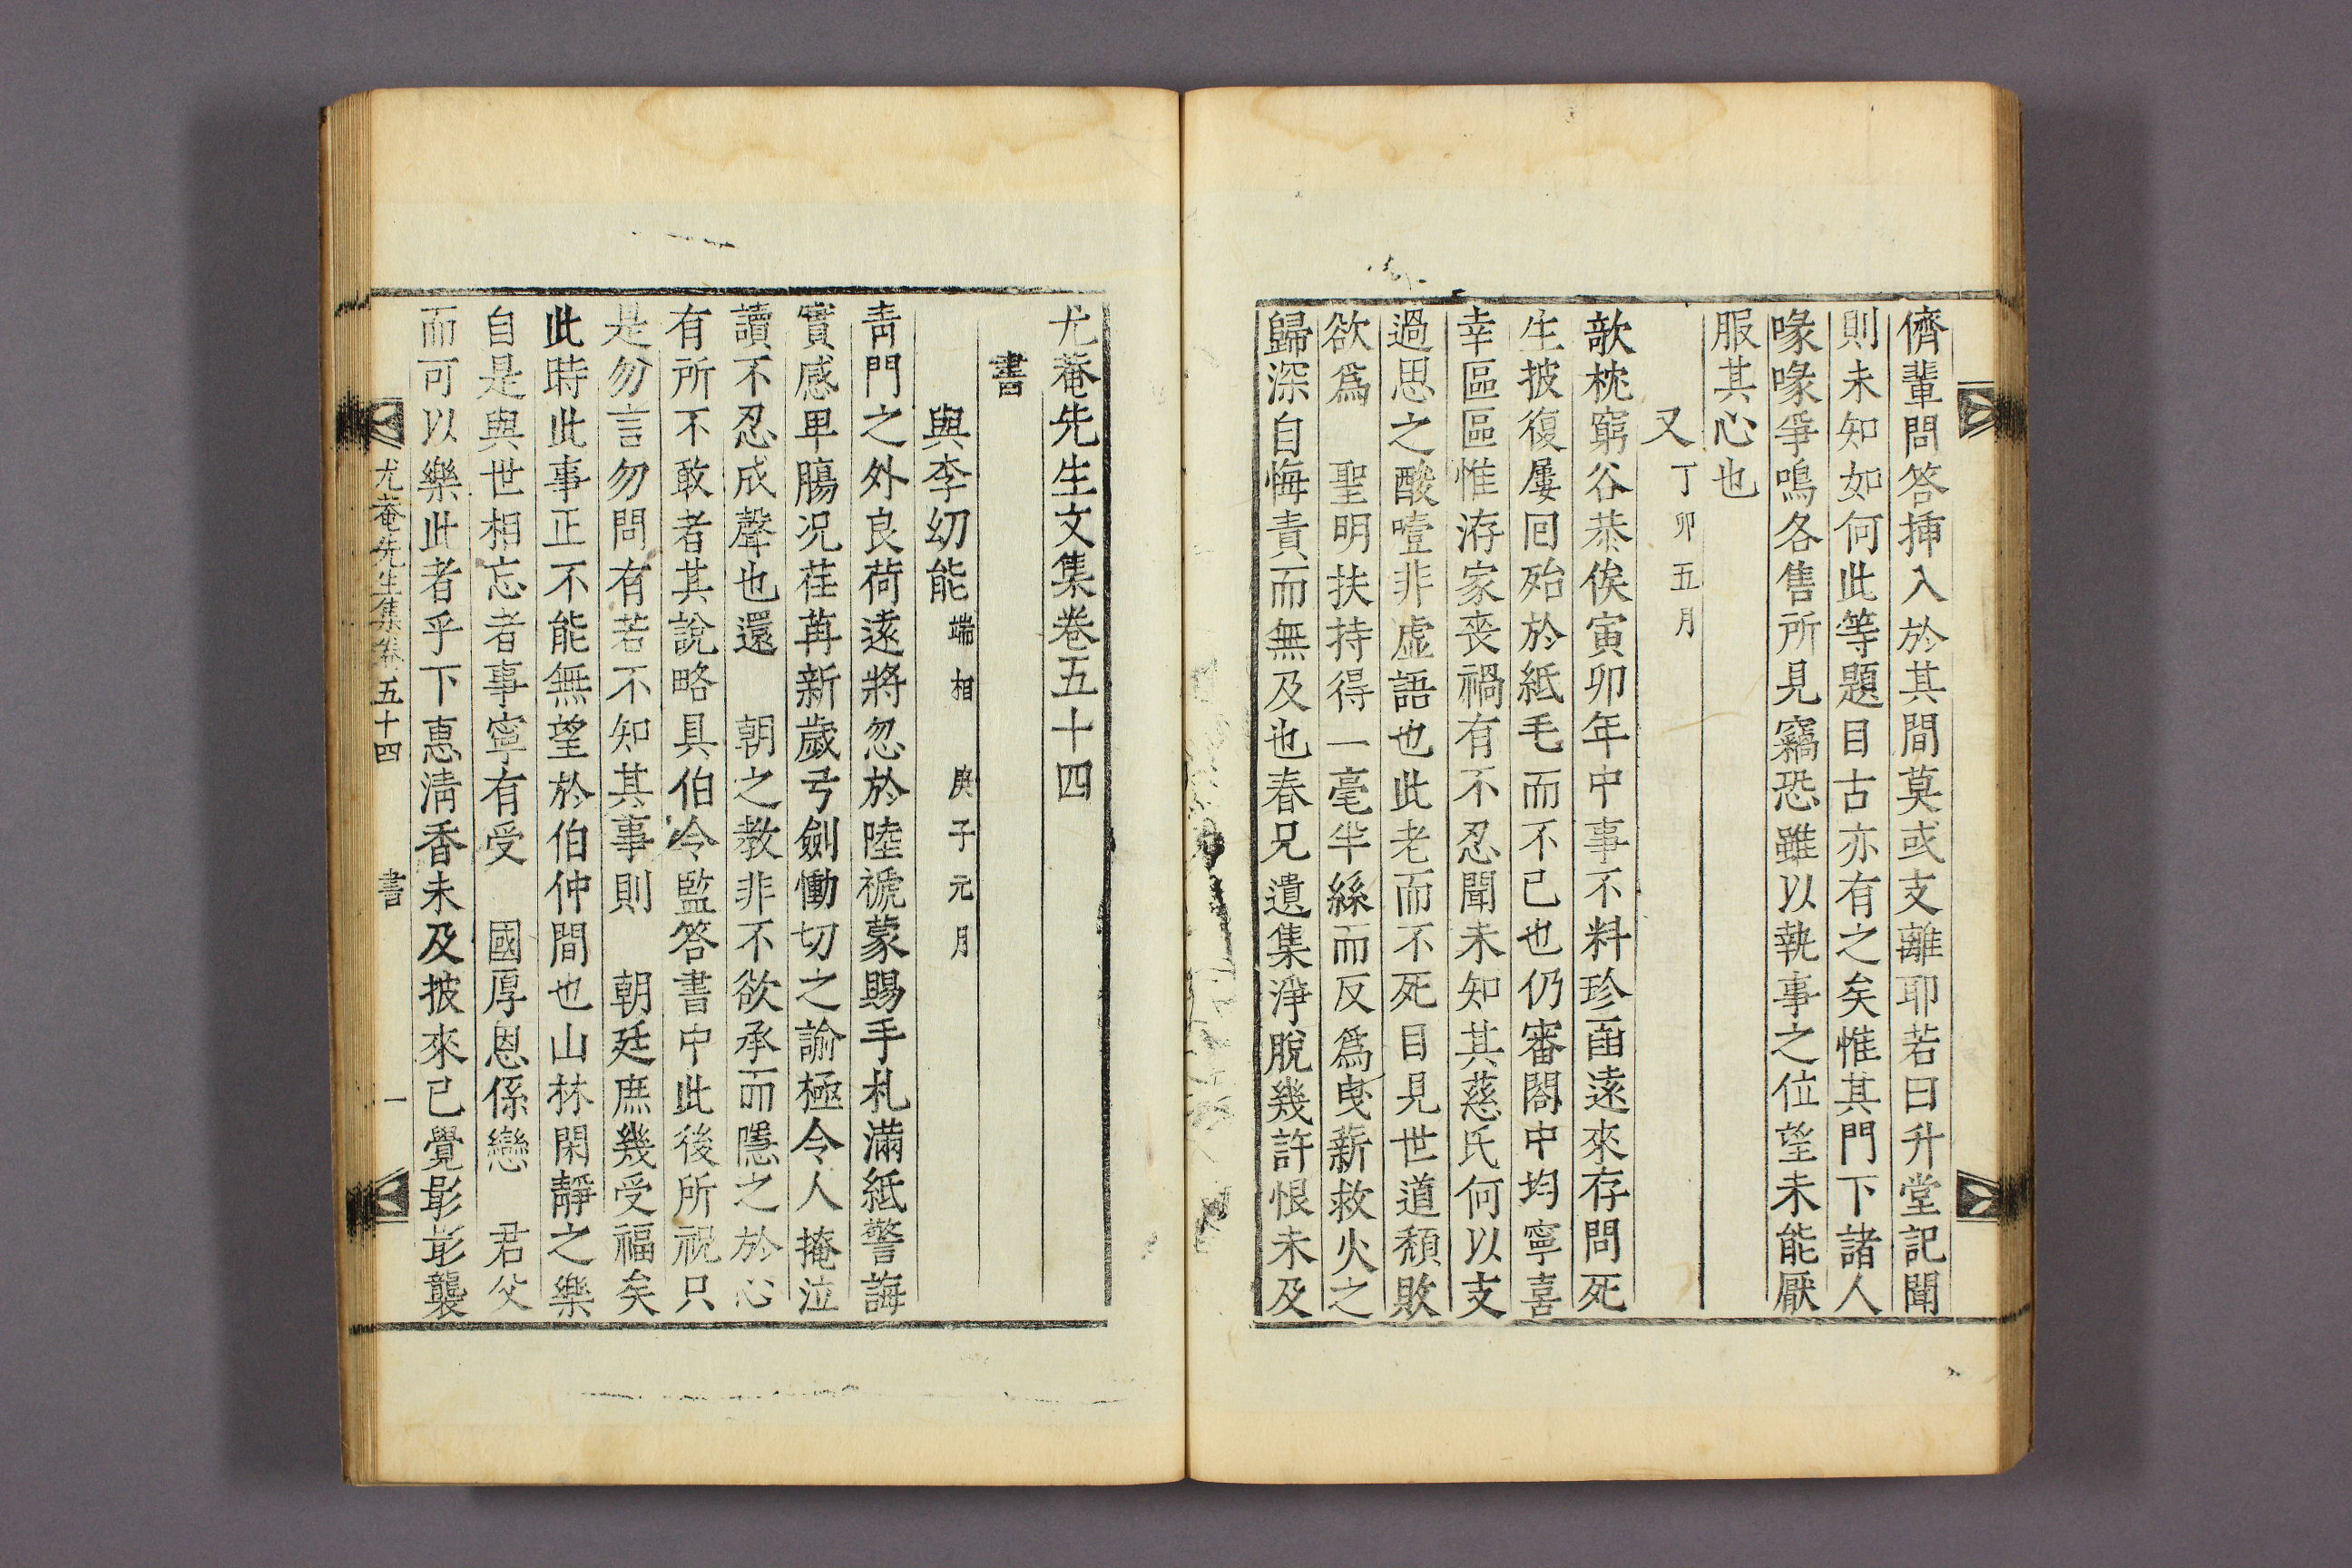 儕輩問答揷入於其間莫或支離耶若曰升堂記聞
則未知如何此等題目古亦有之矣惟其門下諸人
喙喙爭鳴各售所見竊恐雖以執事之位望未能厭
服其心也
又 丁卯五月
欹枕窮谷恭俟寅卯年中事不料珍凾遠來存問死
生披復屢回殆於紙毛而不已也仍審閤中均寧喜
幸區區惟洊家喪禍有不忍聞未知其慈氏何以支
過思之酸噎非虛語也此老而不死目見世道頹敗
欲爲 聖明扶持得一毫半絲而反爲曳薪救火之
歸深自悔責而無及也春兄遺集淨脫幾許恨未及
尤菴先生文集卷五十四
書
與李幼能 端相 庚子元月
靑門之外良荷遠將忽於陸褫蒙賜手札滿紙警誨
實感卑膓况荏苒新歲弓劍慟切之諭極令人掩泣
讀不忍成聲也還 朝之教非不欲承而隱之於心
有所不敢者其說略具伯令監答書中此後所祝只
是勿言勿問有若不知其事則 朝廷庶幾受福矣
此時此事正不能無望於伯仲間也山林閑靜之樂
自是與世相忘者事寧有受 國厚恩係戀 君父
而可以樂此者乎下惠淸香未及披來已覺髟髟襲
尤菴先生集卷五十四 書 一